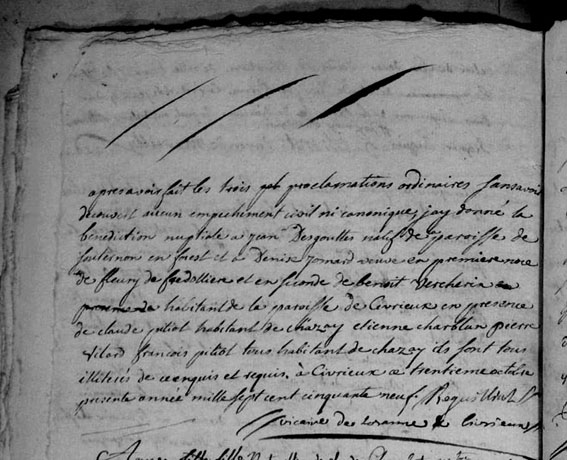 apres avoir fait les trois proclamations ordinaires sans avoir
decouvert aucun empechement civil ni canonique, jay donné la
benediction nuptiale a jean Desgouttes natif de paroisse de
souternon en forest et a Denise Jomard veuve en premiere noce
de fleury de fredolliere et en seconde de benoit
habitant de la paroisse de Civrieux en presence
de claude pitiot habitant de chazay etienne charblan pierre
vilard francois pitiot tous habitant de chazay ils sont tous
illiterés de ce enquis et requis. à Civrieux ce trentieme octobre
presente année mille sept cent cinquante neuf.
vicaire de lozanne & Civrieux